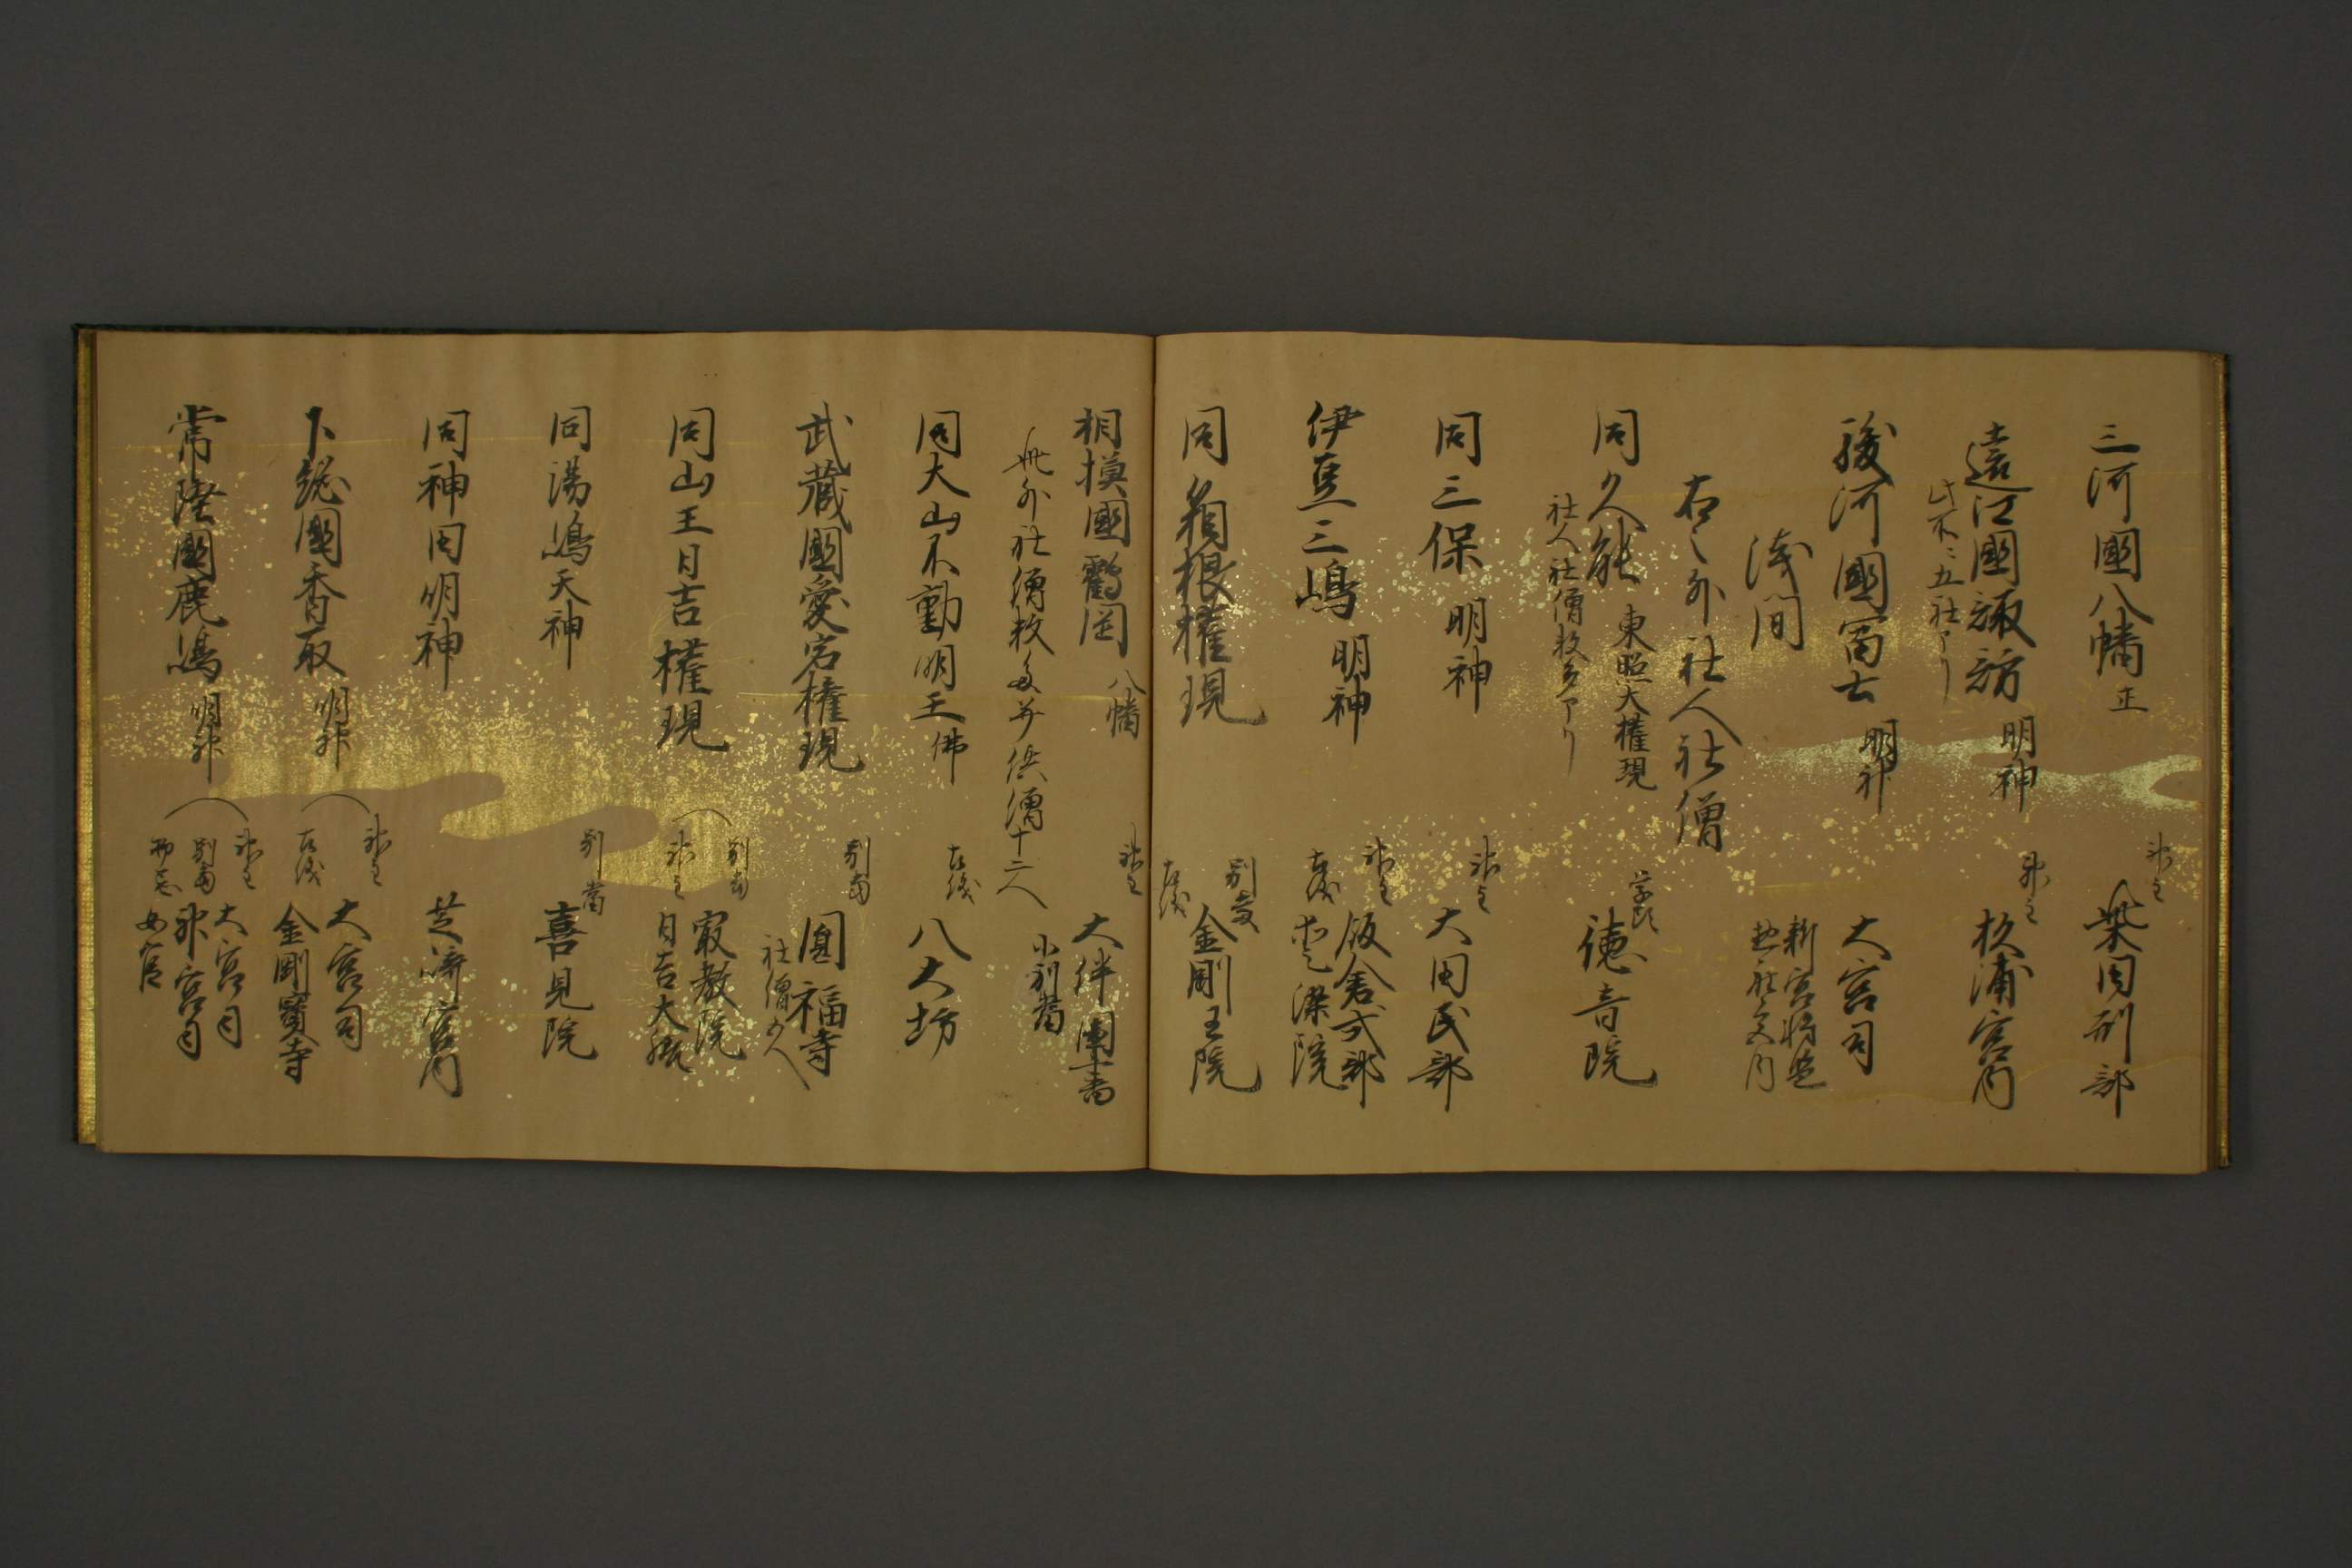 三河國八幡 正 神主 柴田刑部
遠江國諏訪 明神 神主 杉浦宮内
此不ニ五社アリ
駿河國冨士 明神 大宮司
浅間 新宮
右之外社人社僧
同久能 東照大權現 学頭 徳音院
社人社僧数多アリ
同三保 明神 神主 大田民部
伊豆三嶋 明神 神主
同箱根權現 別當 金剛王院
相摸國鶴岡 八幡 神主 大伴
小別當
此外社僧数多并供僧十二人
同大山不動明王 佛 八大坊
武藏國愛宕權現 別當 圓福寺
社僧
同山王日吉權現 別當 寂教院
神主 日吉大
同湯嶋天神 別當 喜見院
同神田明神 芝﨑宮内
下総國香取 明神 神主 大宮司
金剛寳寺
常陸國鹿嶋 明神 神主 大宮司
別當 神宮司
物忌 女官